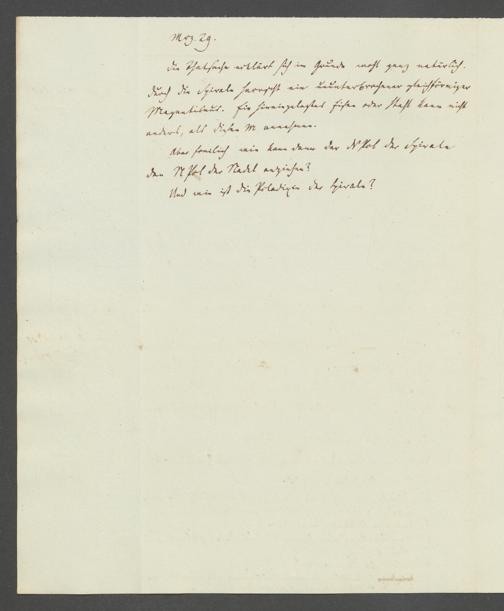 Mrz. 29.
Die Thatsache erklärt sich im Grunde wohl ganz natürlich.
Durch die Spirale herrscht ein ununterbrochener gleichförmiger
Magnetismus. Ein hineingelegtes Eisen oder Stahl kann nicht
anders, als diesen M annehmen.
Aber freilich wie kann denn der N Pol der Spirale
den N Pol der Nadel anziehen?
Und wie ist die Poladizin der Spirale?